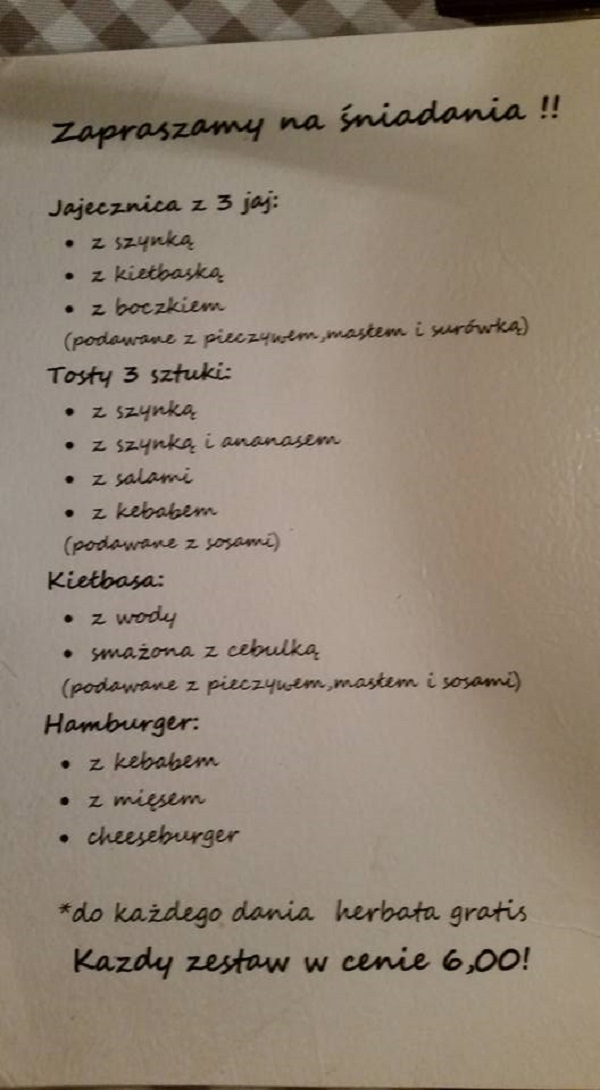 Zapraszamy na śniadania !!
Jajecznica z 3 jaj:
• z szynką
• z kiełbaską
• z boczkiem
(podawane z pieczywem,masłem i surówką)
Tosty 3 sztuki:
• z szynką
• z szynką i ananasem
• z salami
• z kebabem
(podawane z sosami)
Kiełbasa:
• z wody
• smażona z cebulką
(podawane z pieczywem,masłem i sosami)
Hamburger:
• z kebabem
• z mięsem
• cheeseburger
*do każdego dania herbata gratis
Kazdy zestaw w cenie 6,00!